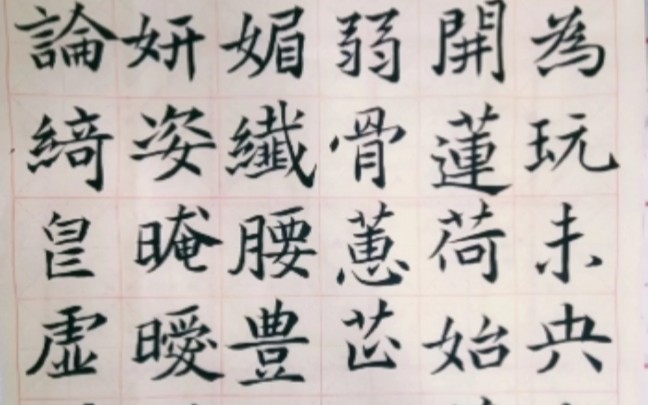 為玩未央
開蓮荷始
弱骨蕙芷
媚纖腰豊
妍姿晻曖
論綺虛